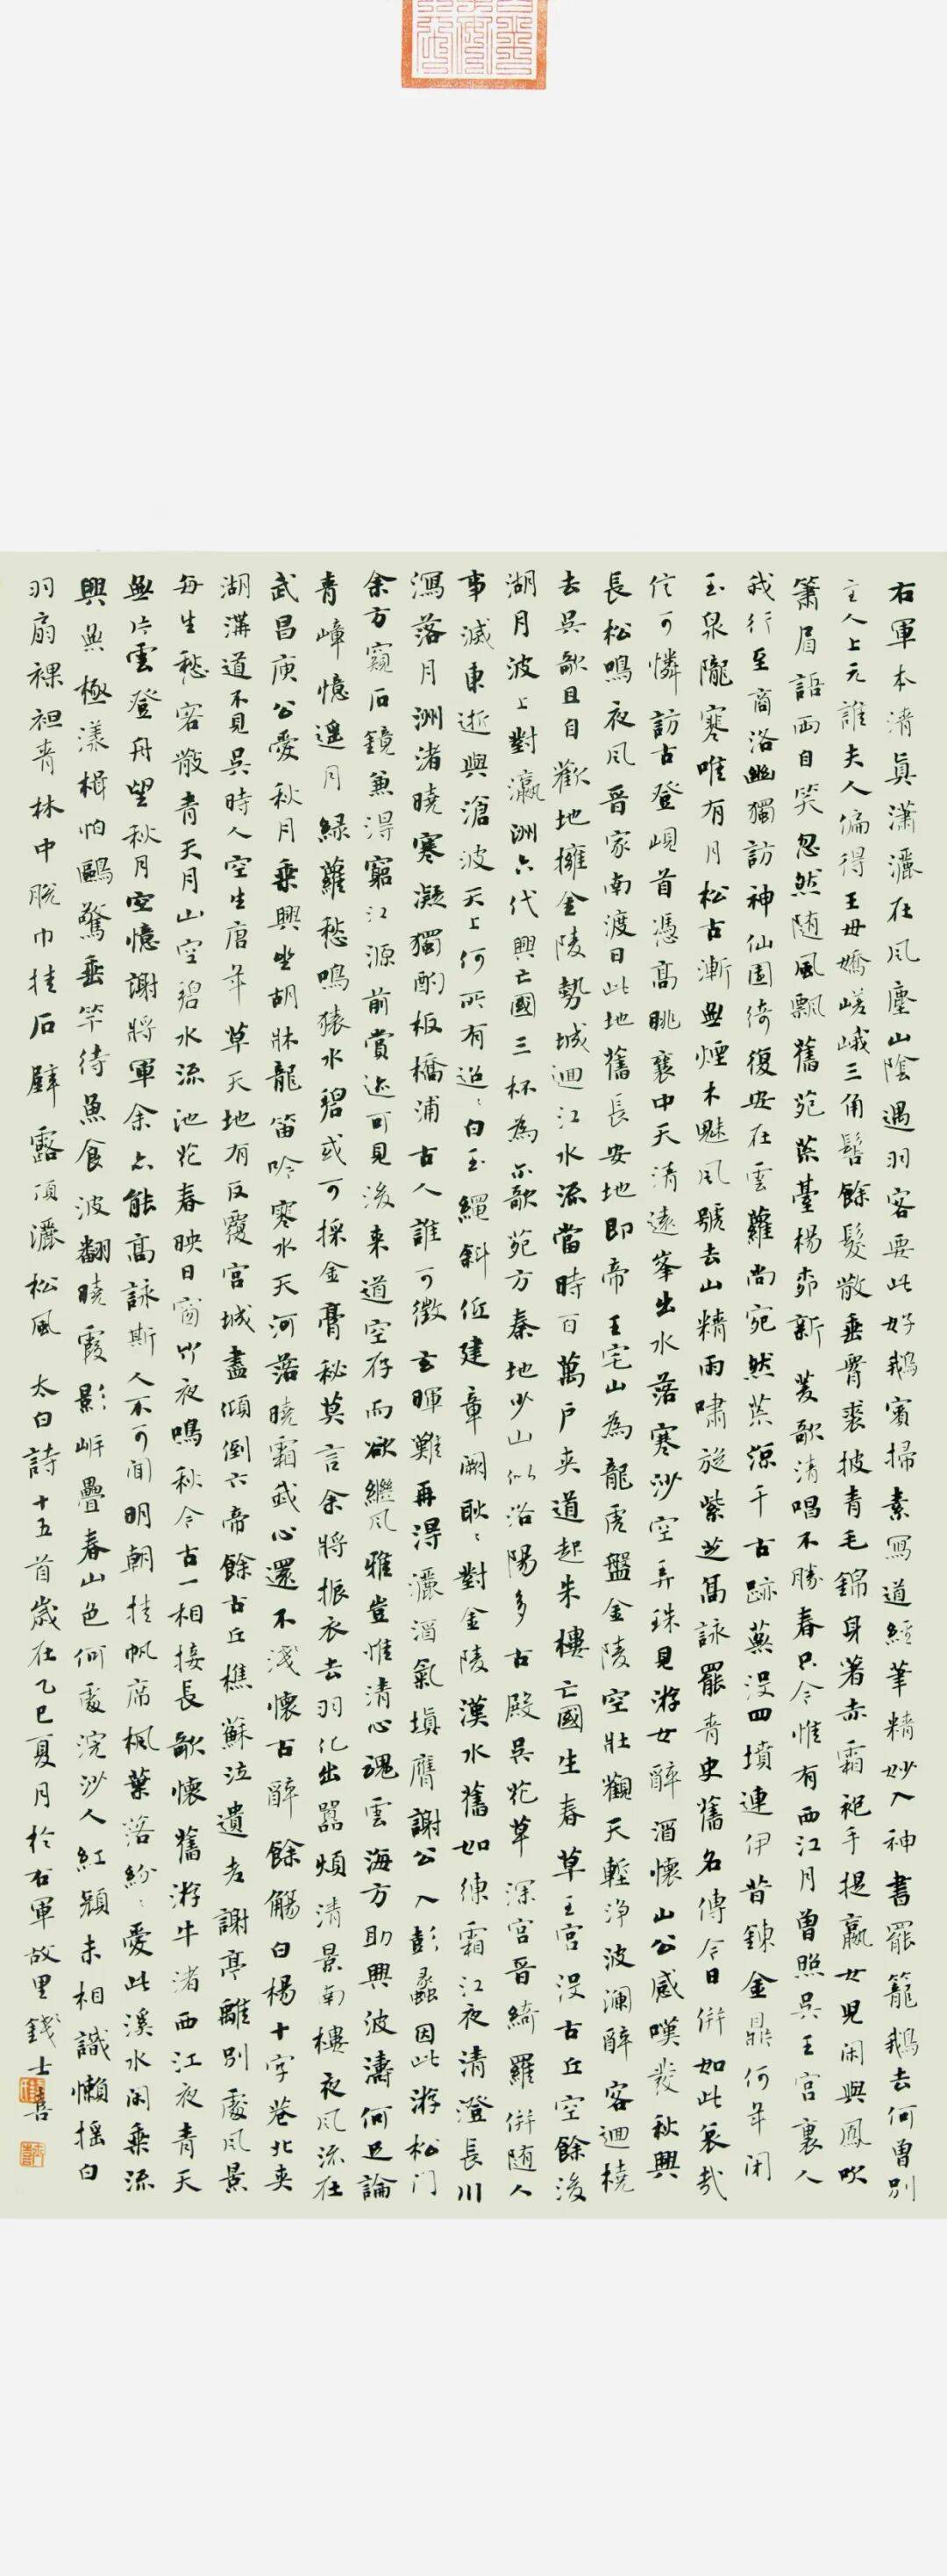 右軍本清真瀟灑在風塵山陰遇羽客要此好鵝賓掃素寫道經筆精妙入神書罷籠鵝去何曾別
主人上元誰夫人偏得王母嬌嵯峨三角髻餘髮散垂腰裘披青毛錦身著赤霜袍手提嬴女兒閑與鳳吹
簫眉語兩自笑忽然隨風飄舊苑荒臺楊柳新菱歌清唱不勝春只今惟有西江月曾照吳王宮裏人
我行至商洛幽獨訪神仙園綺復安在雲蘿尚宛然荒涼千古跡蕪沒四墳連伊昔鍊金鼎何年閉
玉泉隴寒唯有月松古漸無煙木魅風號去山精雨嘯旋紫芝高詠罷青史舊名傳今日併如此哀哉
信可憐訪古登峴首憑高眺襄中天清遠峯出水落寒沙空弄珠見游女醉酒懷山公感嘆發秋興
長松鳴夜風晉家南渡日此地舊長安地即帝王宅山為龍虎盤金陵空壯觀天塹淨波瀾醉客迴橈
去吳歌且自歡地擁金陵勢城迴江水流當時百萬戶夾道起朱樓亡國生春草王宮沒古丘空餘後
湖月波上對瀛洲六代興亡國三杯為尓歌苑方秦地少山似洛陽多古殿吳花草深宮晉綺羅併隨人
事滅東逝與滄波天上何所有迢〻白玉繩斜低建章闕耿〻對金陵漢水舊如練霜江夜清澄長川
瀉落月洲渚曉寒凝獨酌板橋浦古人誰可徵玄暉難再得灑酒氣填膺謝公入彭蠡因此游松門
余方窺石鏡兼得窮江源前賞迹可見後來道空存而欲繼風雅豈惟清心魂雲海方助興波濤何足論
青嶂憶遙月綠蘿愁鳴猿水碧或可採金膏秘莫言余將振衣去羽化出囂煩清景南樓夜風流在
武昌庾公愛秋月乘興坐胡牀龍笛吟寒水天河落曉霜我心還不淺懷古醉餘觴白楊十字巷北夾
湖溝道不見吳時人空生唐年草天地有反覆宮城盡傾倒六帝餘古丘樵蘇泣遺老謝亭離別處風景
每生愁客散青天月山空碧水流池花春映日窗竹夜鳴秋今古一相接長歌懷舊游牛渚西江夜青天
無片雲登舟望秋月空憶謝將軍余亦能高詠斯人不可聞明朝挂帆席楓葉落紛〻愛此溪水閑乘流
興無極漾楫怕鷗驚垂竿待魚食波翻曉霞影岸疊春山色何處浣沙人紅顏未相識懶搖白
羽扇裸袒青林中脫巾挂石壁露頂灑松風 太白詩十五首歲在乙巳夏月於右軍故里錢士喜